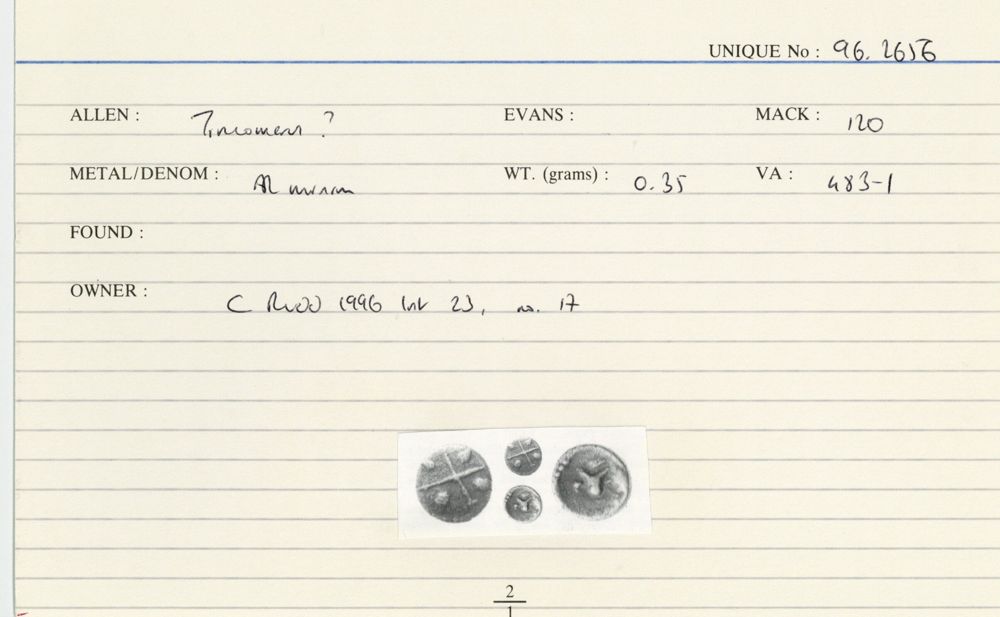 UNIQUE No : 96. 2656
ALLEN : Tincomerus ? EVANS : MACK : 120
METAL/DENOM : AR minim WT. (grams) : 0.35 VA : 483-1
FOUND :
OWNER :
C Rudd 1996 list 23, no. 17
2
1